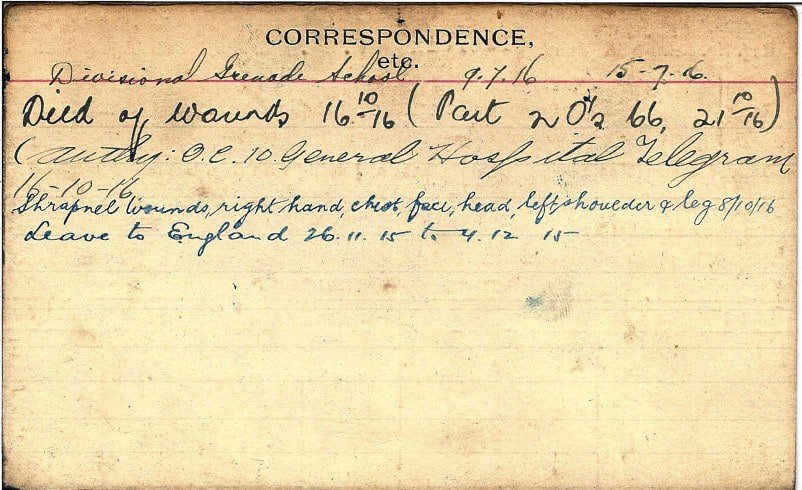 CORRESPONDENCE,
etc.
Divisional Grenade School 9.7.16 15-7-16.
Died of wounds 16 10/16 (Part 2 O's 66, 21 10/16)
(Authy: O.C. 10. General Hospital Telegram
16-10-16.
Shrapnel wounds, right hand, chest, face, head, left shoueder & leg 8/10/16
Leave to England 26.11.15 to 4.12 15